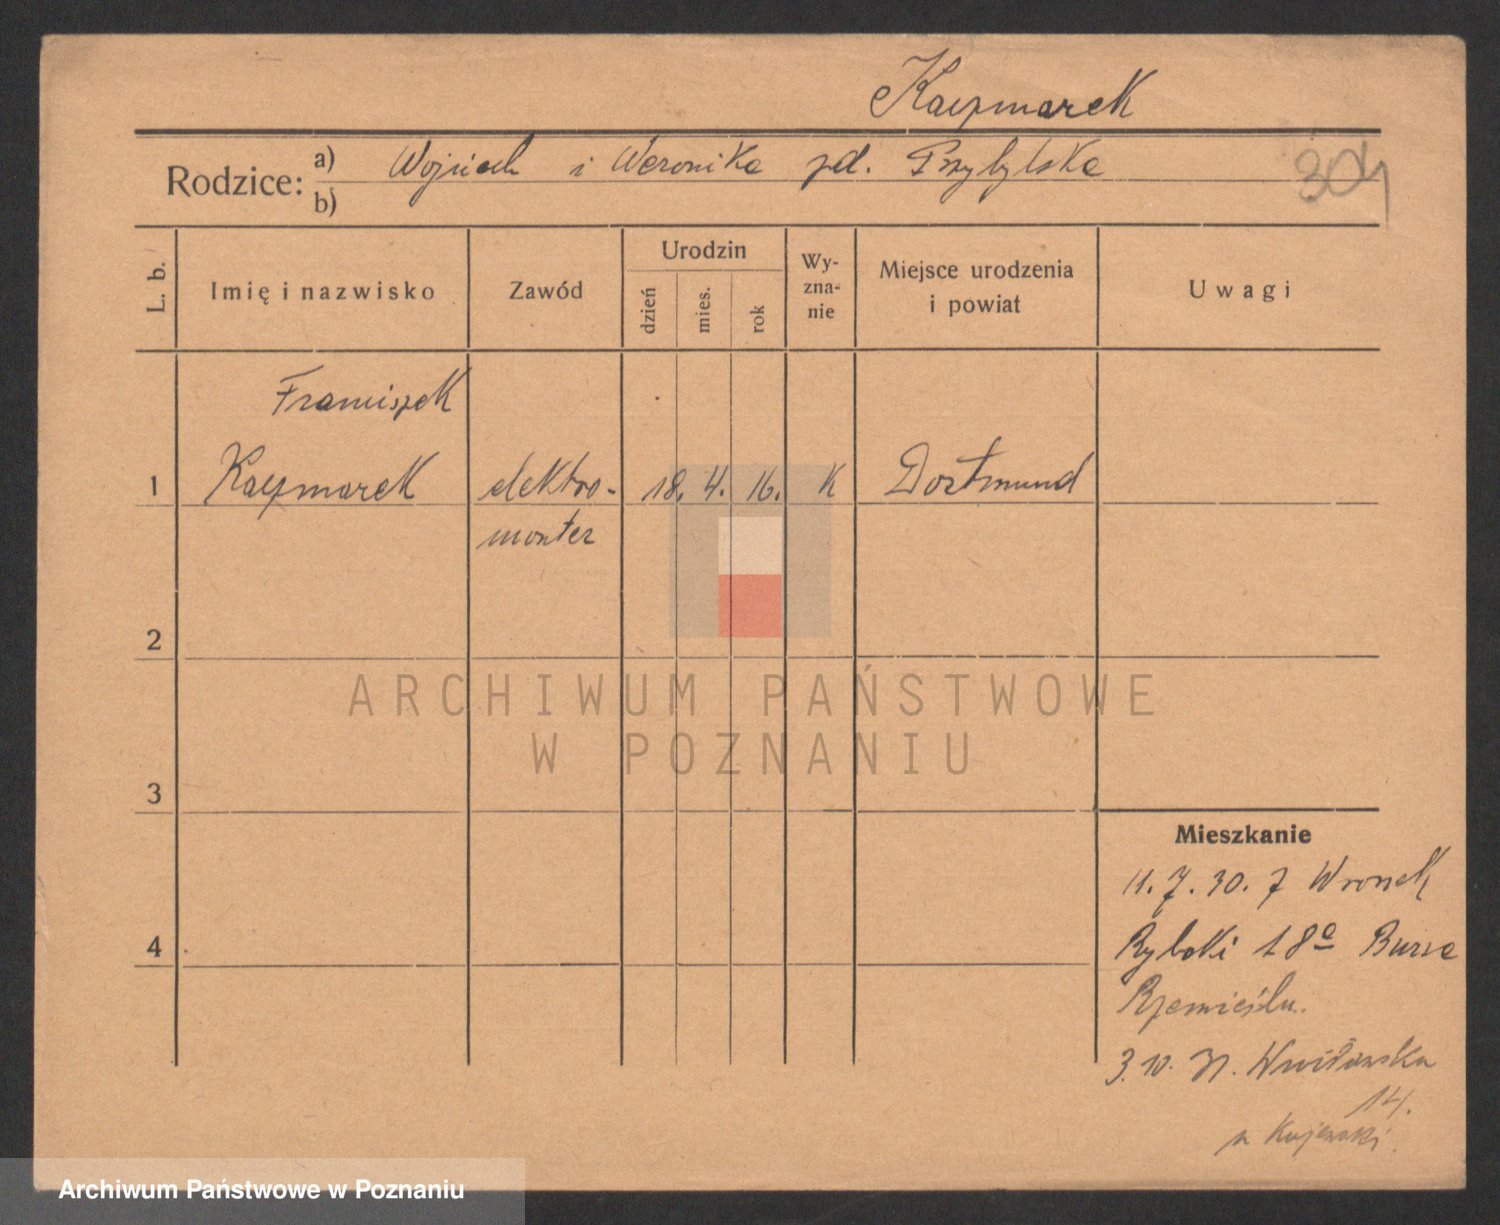 Kaczmarek
Rodzice: a) Wojciech i Weronika zd. Przybylska
b)
304
L. b.
Imię i nazwisko
Zawód
Urodzin
dzień
mies.
rok
Wy-
zna-
nie
Miejsce urodzenia
i powiat
Uwagi
Franciszek
1 Kaczmarek elektro- 18. 4. 16. K Dortmund
monter
2
ARCHIWUM PAŃSTWOWE
W POZNANIU
3
Mieszkanie
11. 7. 30. z Wronek
4 Rybaki 18a Bursa
Rzemieśln.
3. 10. 31. Wrocławska
14.
Archiwum Państwowe w Poznaniu